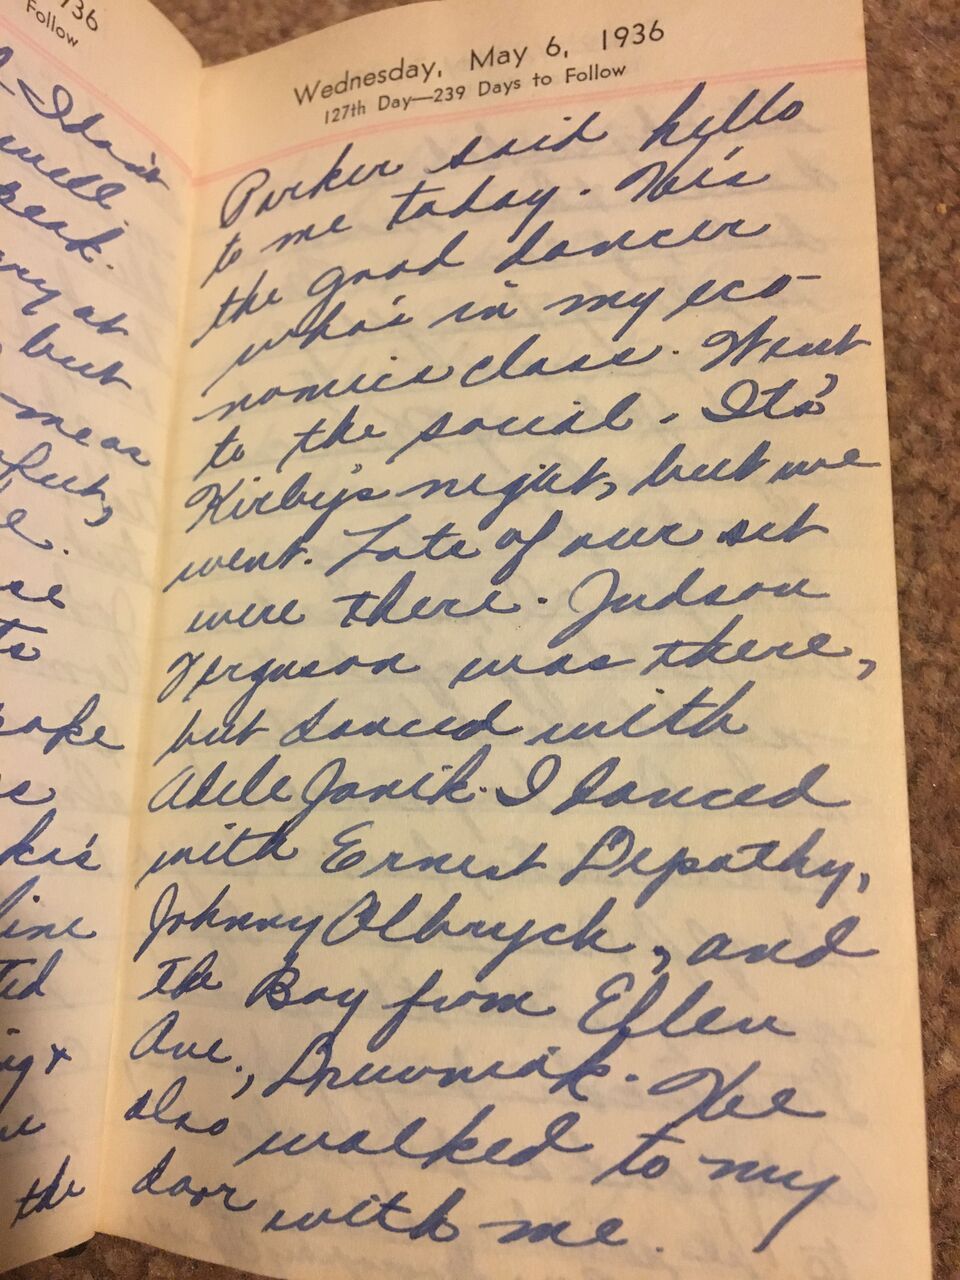 936
Follow
I don't
well.
peak.
ry at
but
me as
e.
se
ts
ka's
line
ted
the
Wednesday, May 6, 1936
127th Day—239 Days to Follow
Parker said hello
to me today. He's
the good dancer
who's in my eco-
nomics class. Went
to the social. It's
Kirby's night, but we
went. Lots of our set
were there. Judson
Ferguson was there,
but danced with
Adele Janik. I danced
with Ernest Depathy,
Johnny Olbrych, and
the Boy from Eflen
Ave., He
also walked to my
door with me.